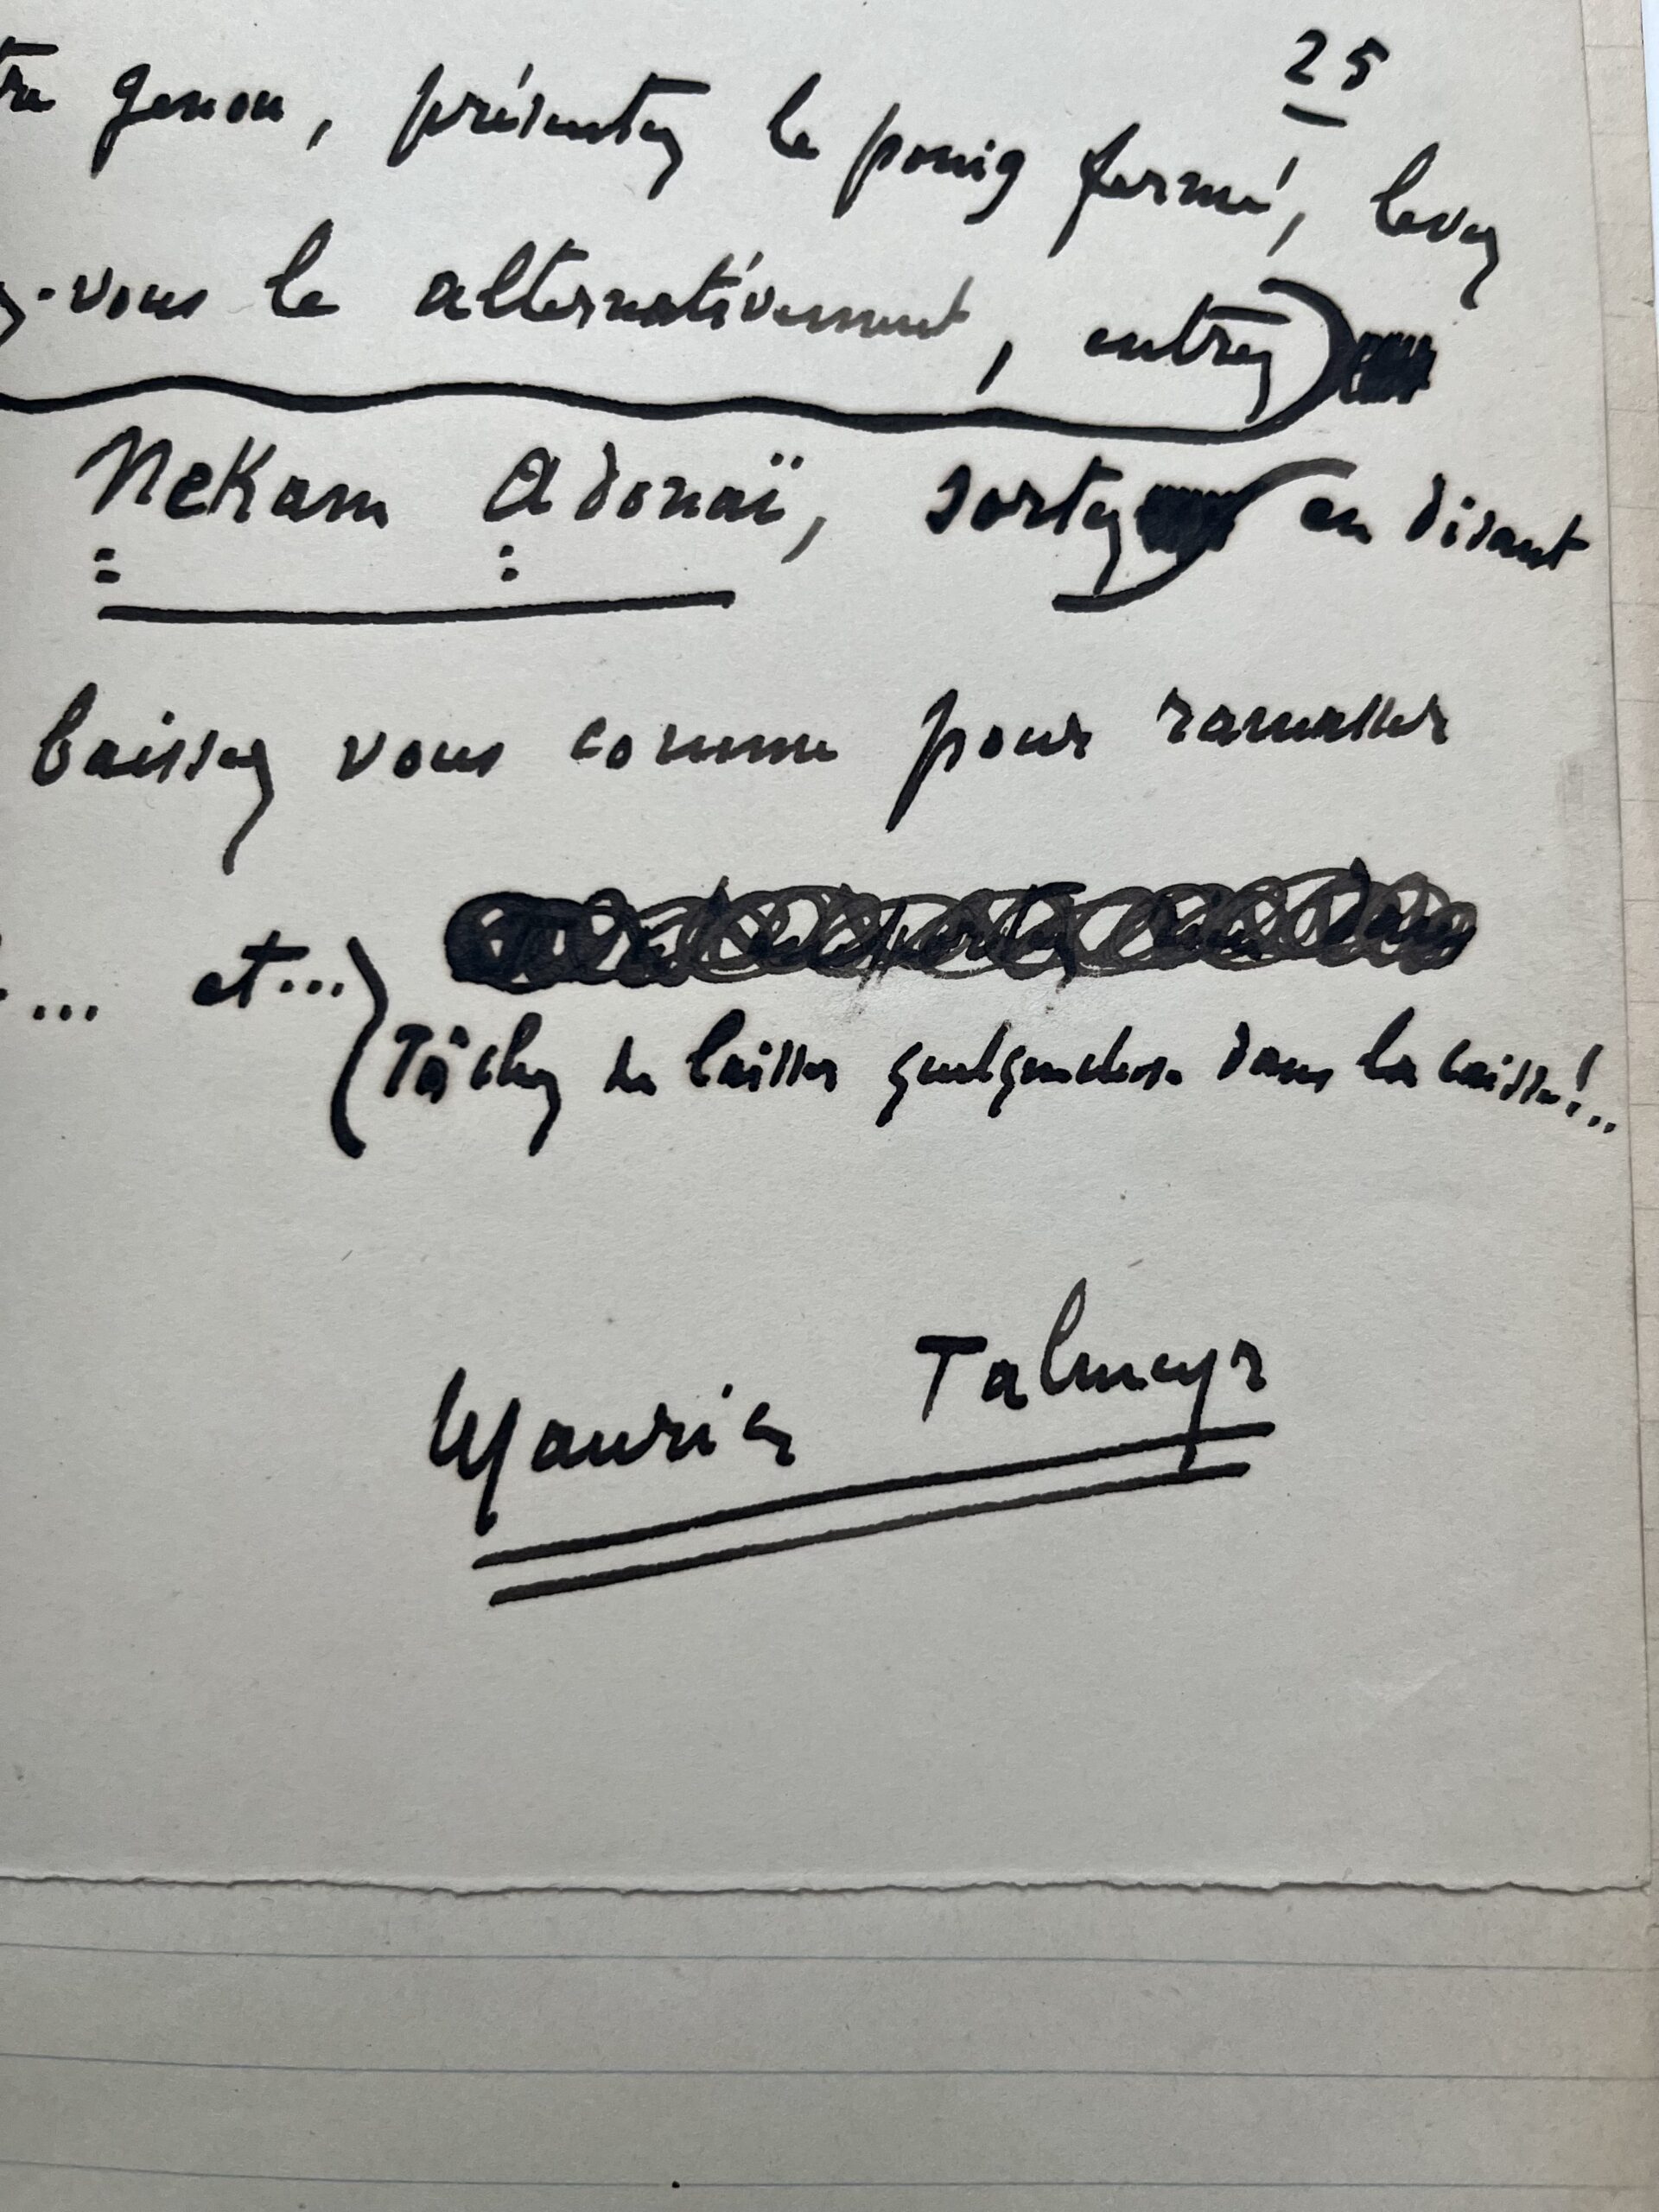 25
genou, présentez le poing fermé, levez
-vous le alternativement, entrez
Nekam Adonaï, sortez en disant
baissez vous comme pour ramasser
... et...
Tâchez de laisser quelquechose dans la caisse!..
Maurice Talmeyr